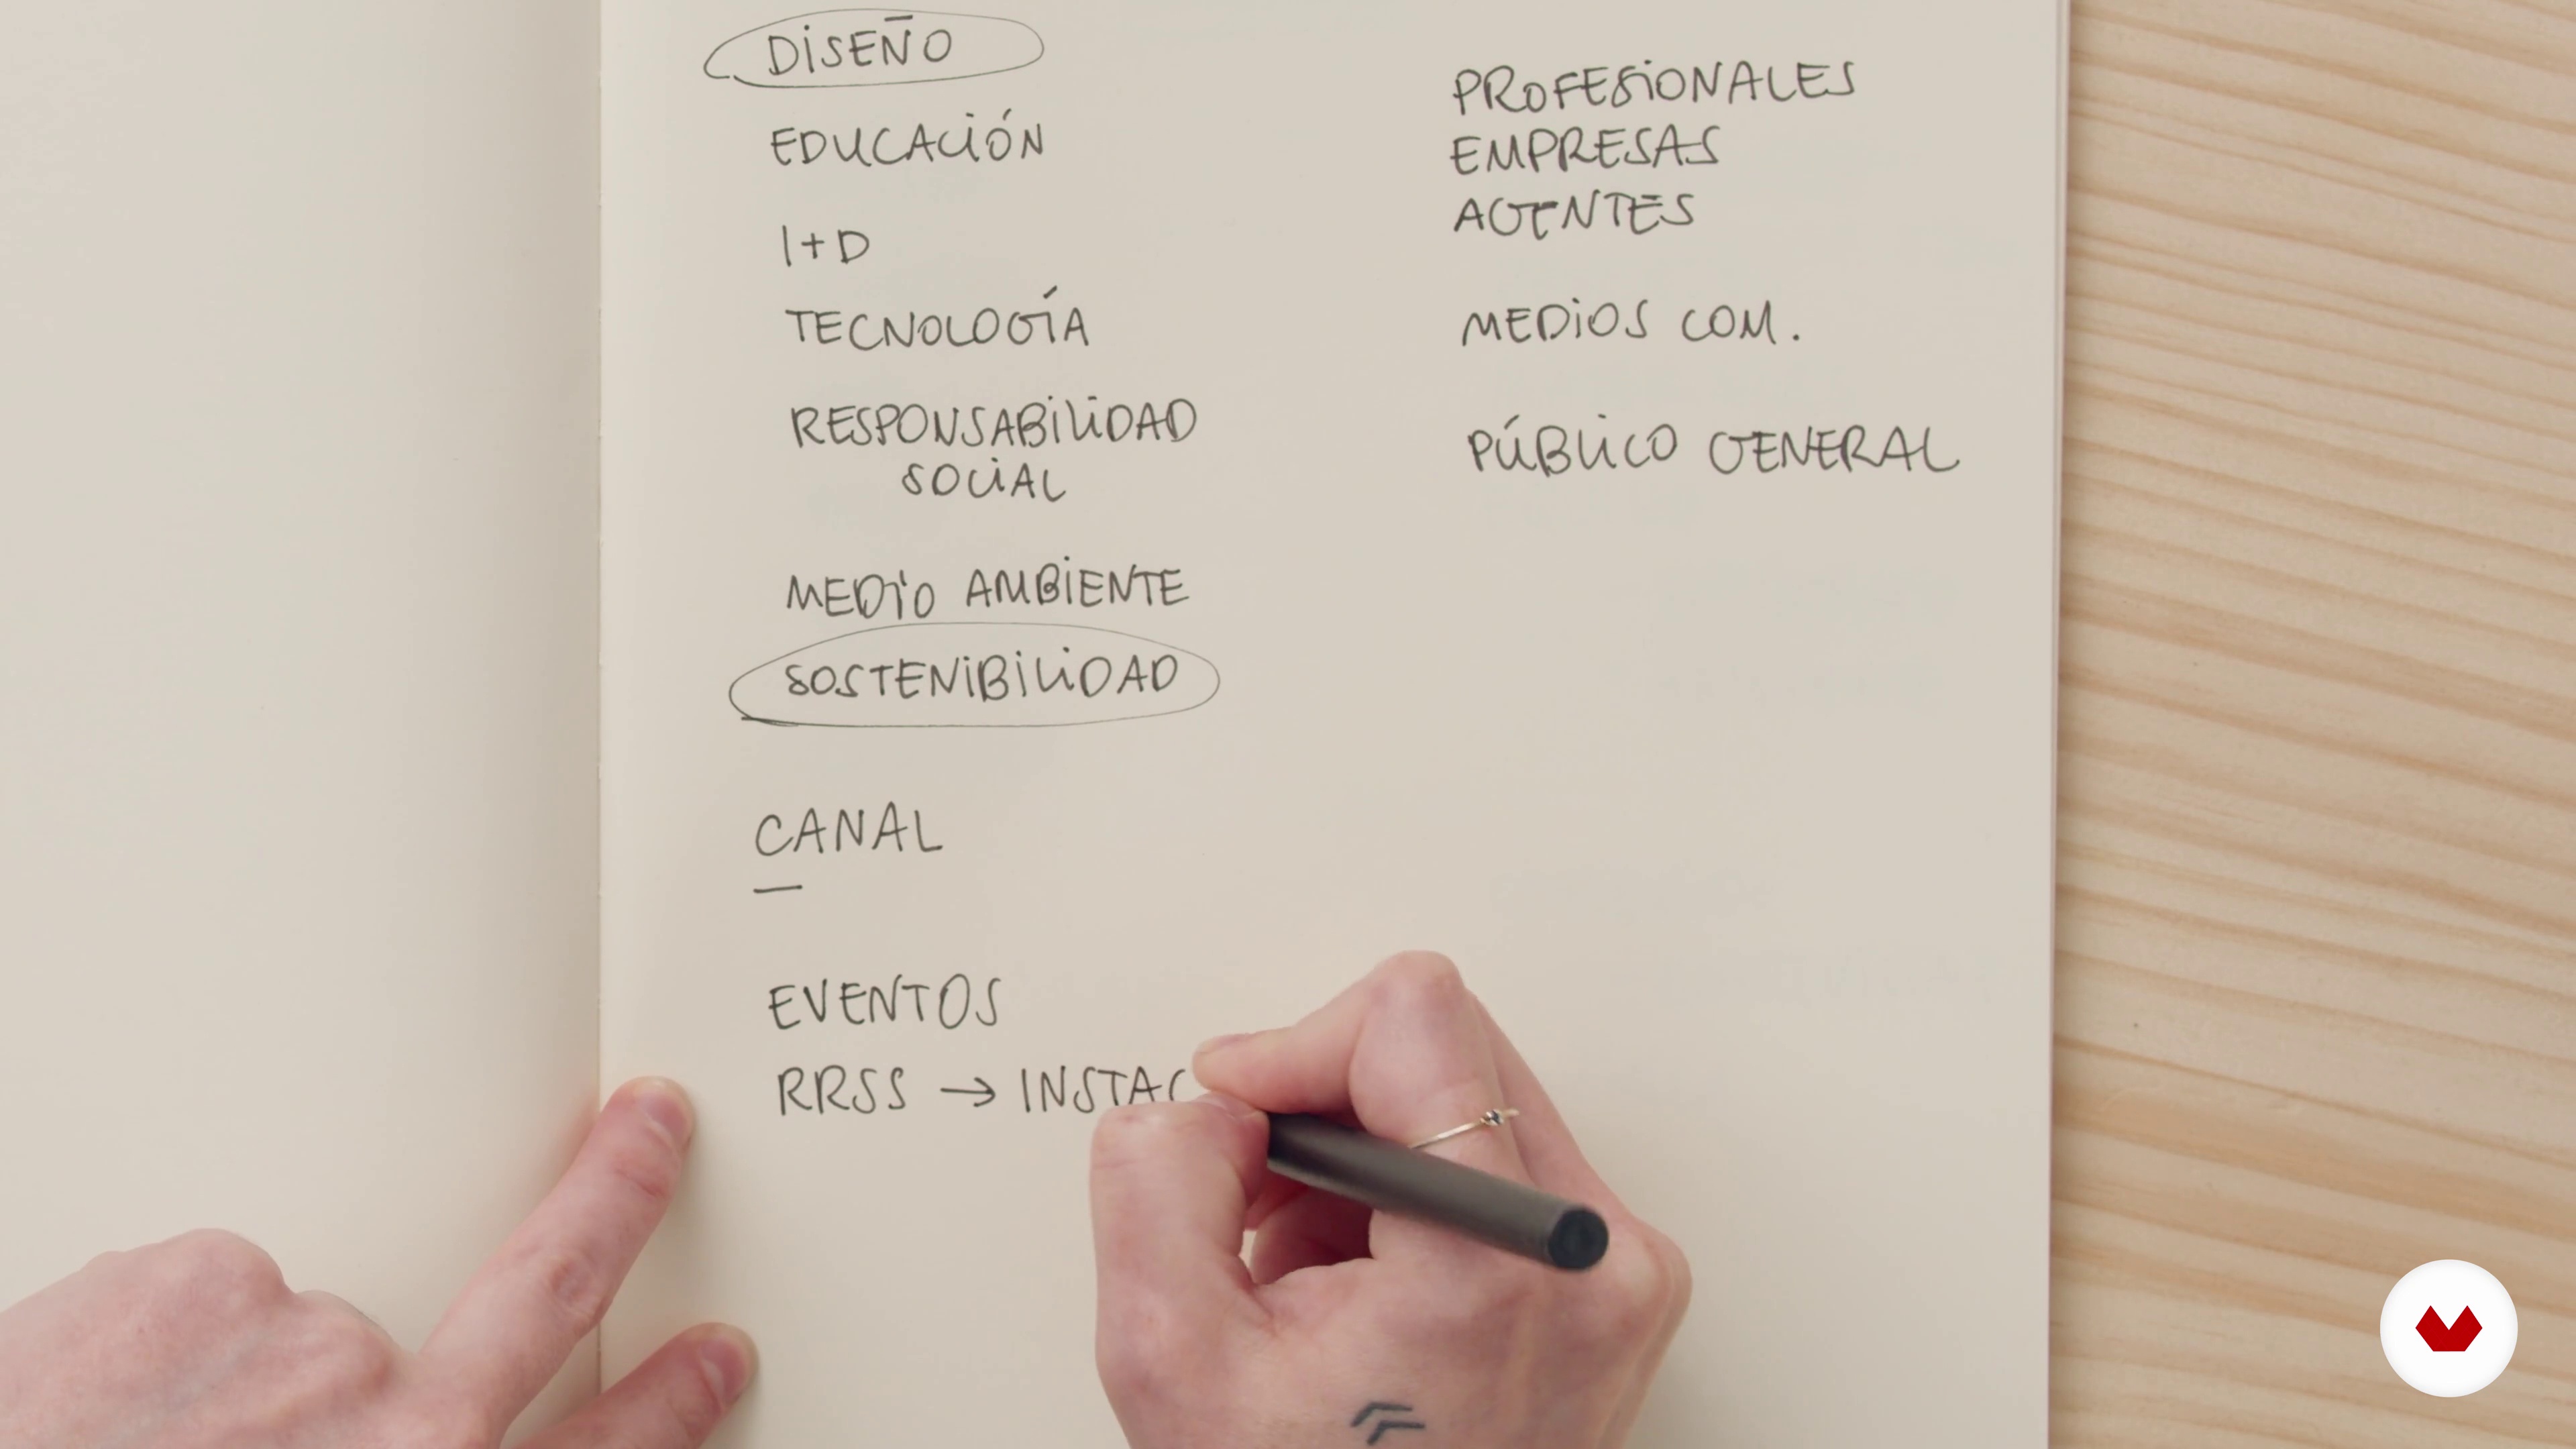 DISEÑO
EDUCACIÓN
I+D
TECNOLOGÍA
RESPONSABILIDAD
SOCIAL
MEDIO AMBIENTE
SOSTENIBILIDAD
CANAL
EVENTOS
RRSS → INSTAG
PROFESIONALES
EMPRESAS
AGENTES
MEDIOS COM.
PÚBLICO GENERAL